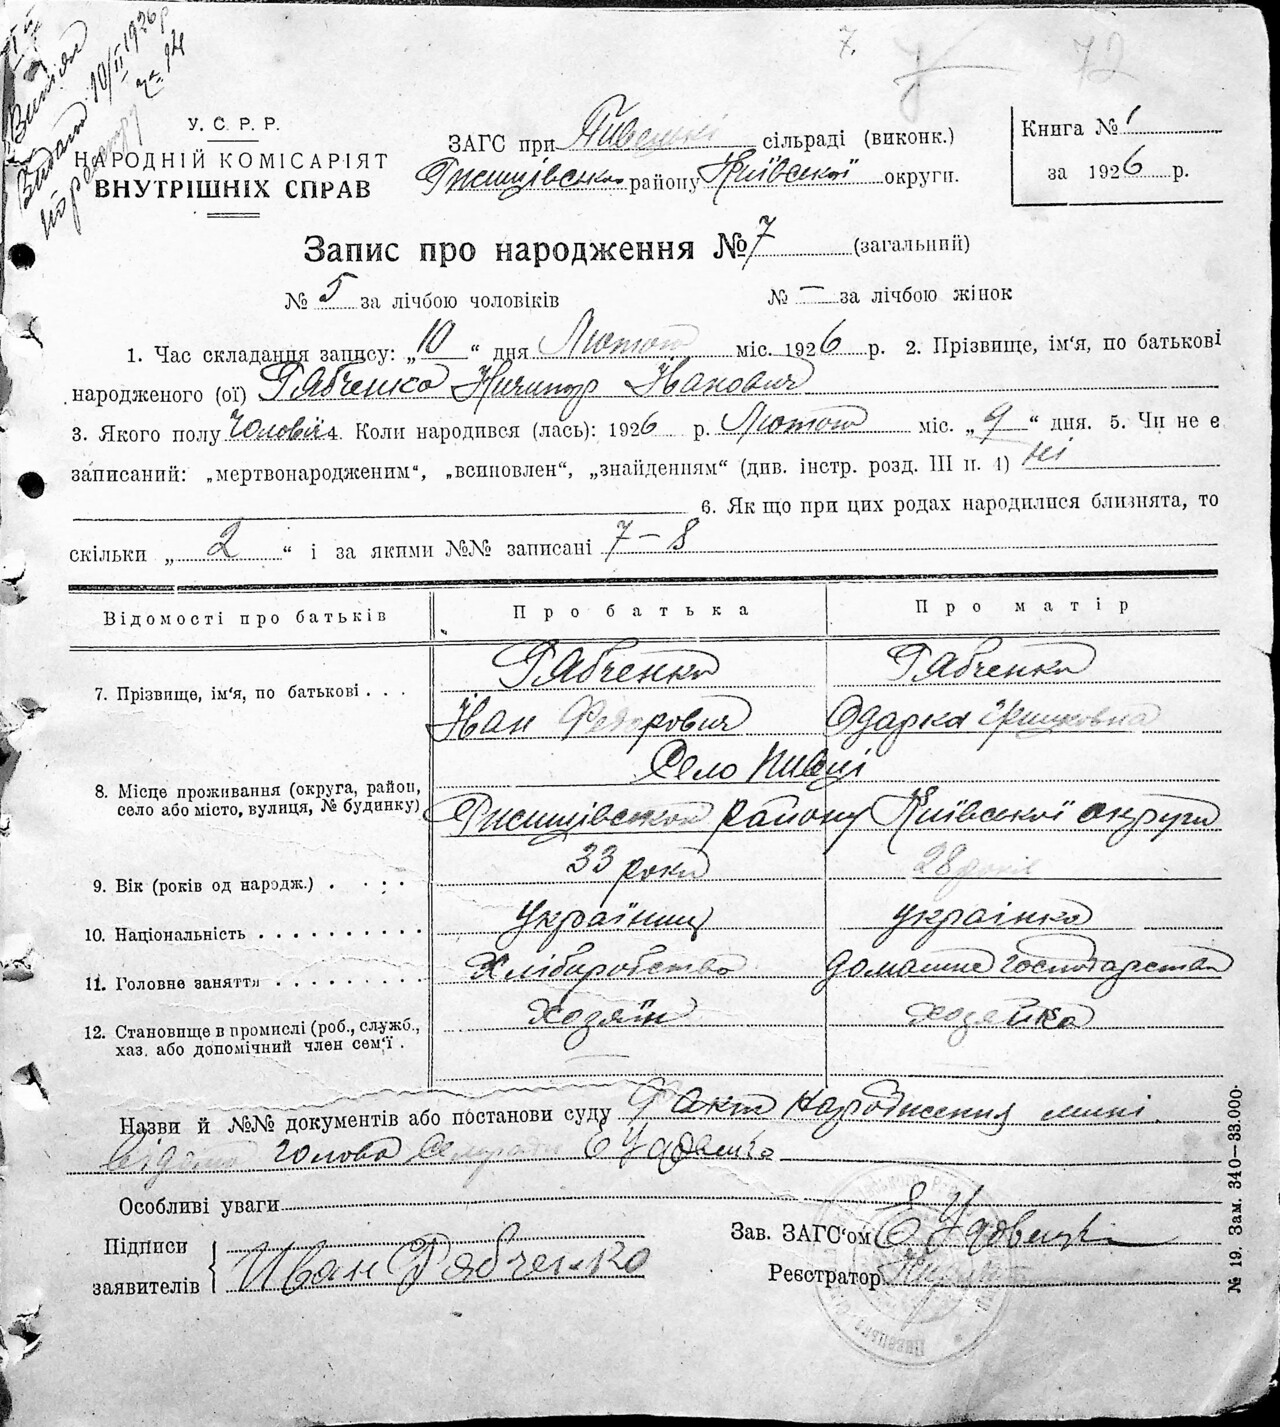 Витяг
Видано 10/II 1926 р
7. 7 72
У. С. Р. Р.
НАРОДНІЙ КОМІСАРІЯТ
ВНУТРІШНІХ СПРАВ
ЗАГС при Пивецькі сільраді (виконк.)
Ржищівсько району Київської округи.
Книга № 1
за 1926 р.
Запис про народження № 7 (загальний)
№ 5 за лічбою чоловіків № — за лічбою жінок
1. Час складання запису: „10“ дня Лютого міс. 1926 р. 2. Прізвище, ім'я, по батькові
народженого (ої) Рябченко Ничипор Іванович
3. Якого полу Чоловіч 4. Коли народився (лась): 1926 р. Лютого міс. „9“ дня. 5. Чи не є
записаний: „мертвонародженим“, „всиновлен“, „знайденням“ (див. інстр. розд. III п. 4) ні
6. Як що при цих родах народилися близнята, то
скільки „2“ і за якими №№ записані 7–8
Відомості про батьків Про батька Про матір
7. Прізвище, ім'я, по батькові . . . Рябченко Рябченко
Іван Федорович Одарка
Село Пивці
8. Місце проживання (округа, район,
село або місто, вулиця, № будинку) Ржищівського району Київської округи
9. Вік (років од народж.) . . . . 33 роки 28 років
10. Національність . . . . . . . . . . Українець українка
11. Головне заняття . . . . . . . . . Хліборобство домашнє господарство
12. Становище в промислі (роб., служб.,
хаз. або допомічний член сем'ї . Хозяїн хозяйка
Назви й №№ документів або постанови суду Факт народження мині
відомо голова Сельради
Особливі уваги
Підписи
заявителів Иван Рябченко
Зав. ЗАГС'ом
Реєстратор
№ 19. Зам. 340—33.000.